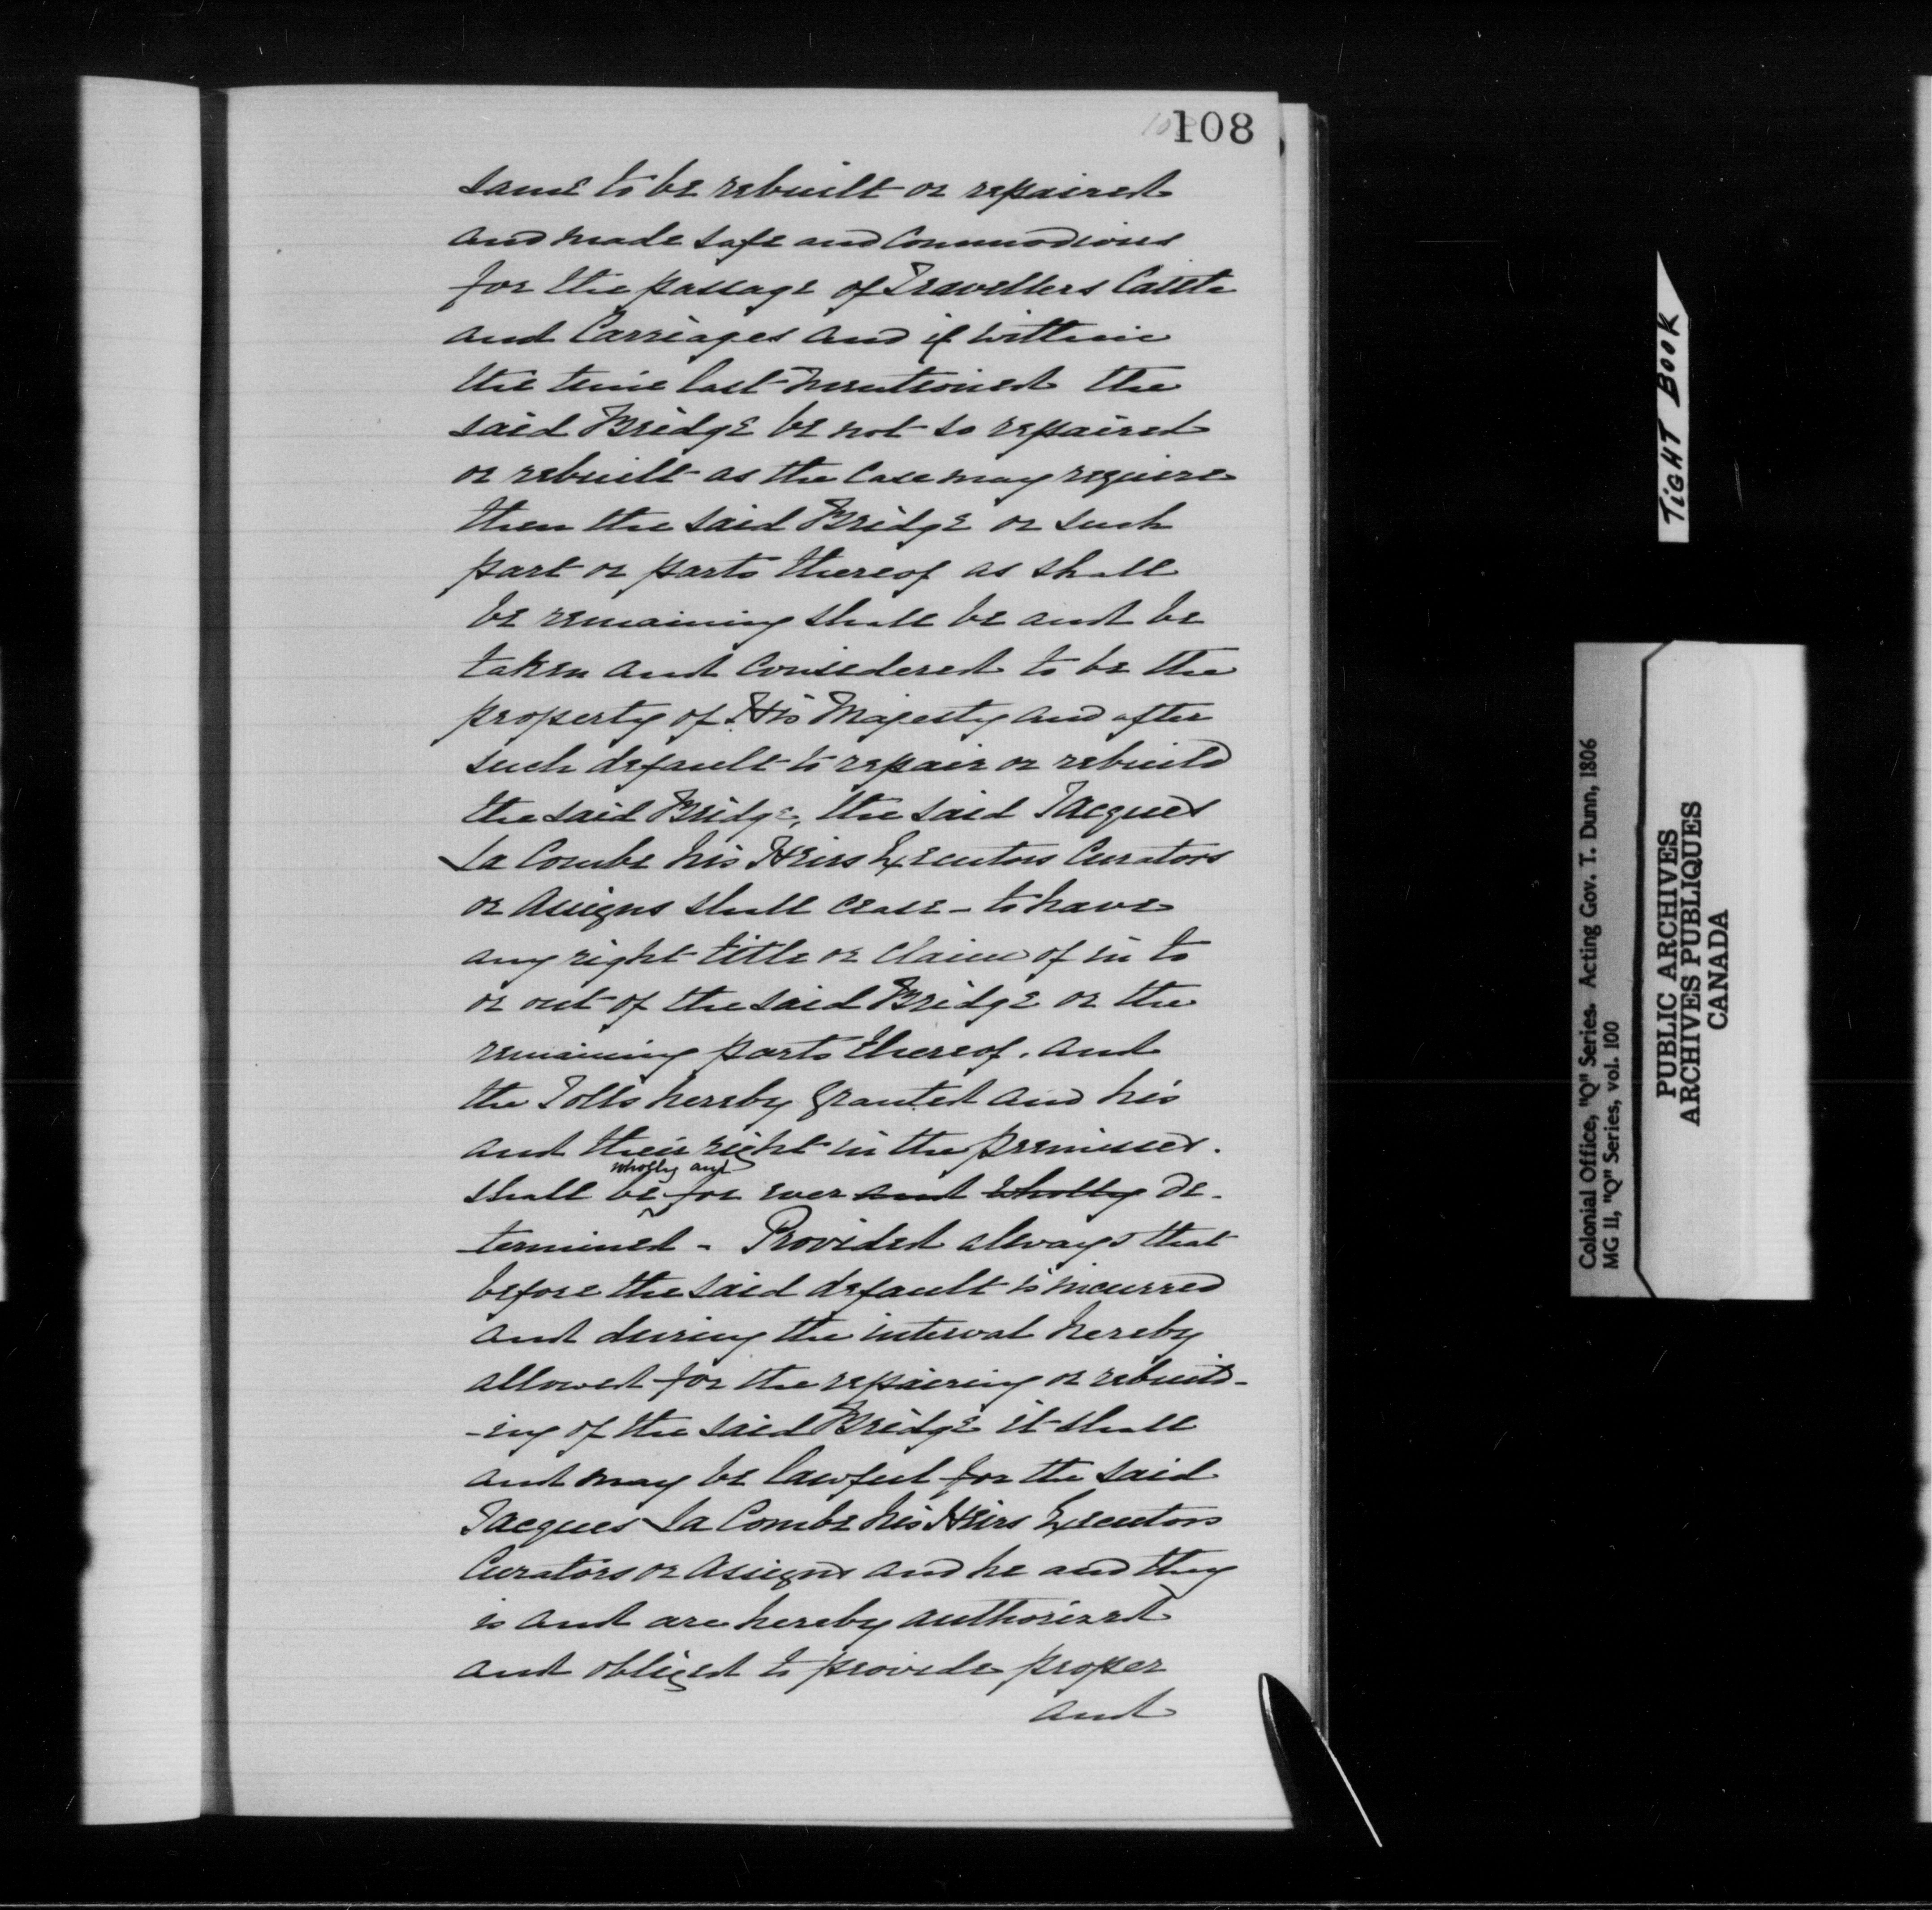 108
same to be rebuilt or repaired
and made safe and Commodious
for the passage of Travellers Cattle
and Carriages and if within
the time last mentioned the
said Bridge be not so repaired
or rebuilt as the Case may require
then the said Bridge or such
part or parts thereof as shall
be remaining shall be and be
taken and Considered to be the
property of His Majesty and after
such default to repair or rebuild
the said Bridge, the said Jacques
La Combe his Heirs Executors Curators
or Assigns shall cease - to have
any right title or claim of in to
or out of the said Bridge or the
remaining parts thereof. and
the Tolls hereby granted and his
and their right in the premises.
wholly and
shall be for ever and wholly de-
termined - Provided always that
before the said default is incurred
and during the interval hereby
allowed for the repairing or rebuild-
-ing of the said Bridge it shall
and may be lawful for the said
Jacques La Combe his Heirs Executors
Curators or Assigns and he and they
is and are hereby authorized
and obliged to provide proper
and
TIGHT BOOK
Colonial Office, "Q" Series. Acting Gov. T. Dunn, 1806
MG 11, "Q" Series, vol. 100
PUBLIC ARCHIVES
ARCHIVES PUBLIQUES
CANADA